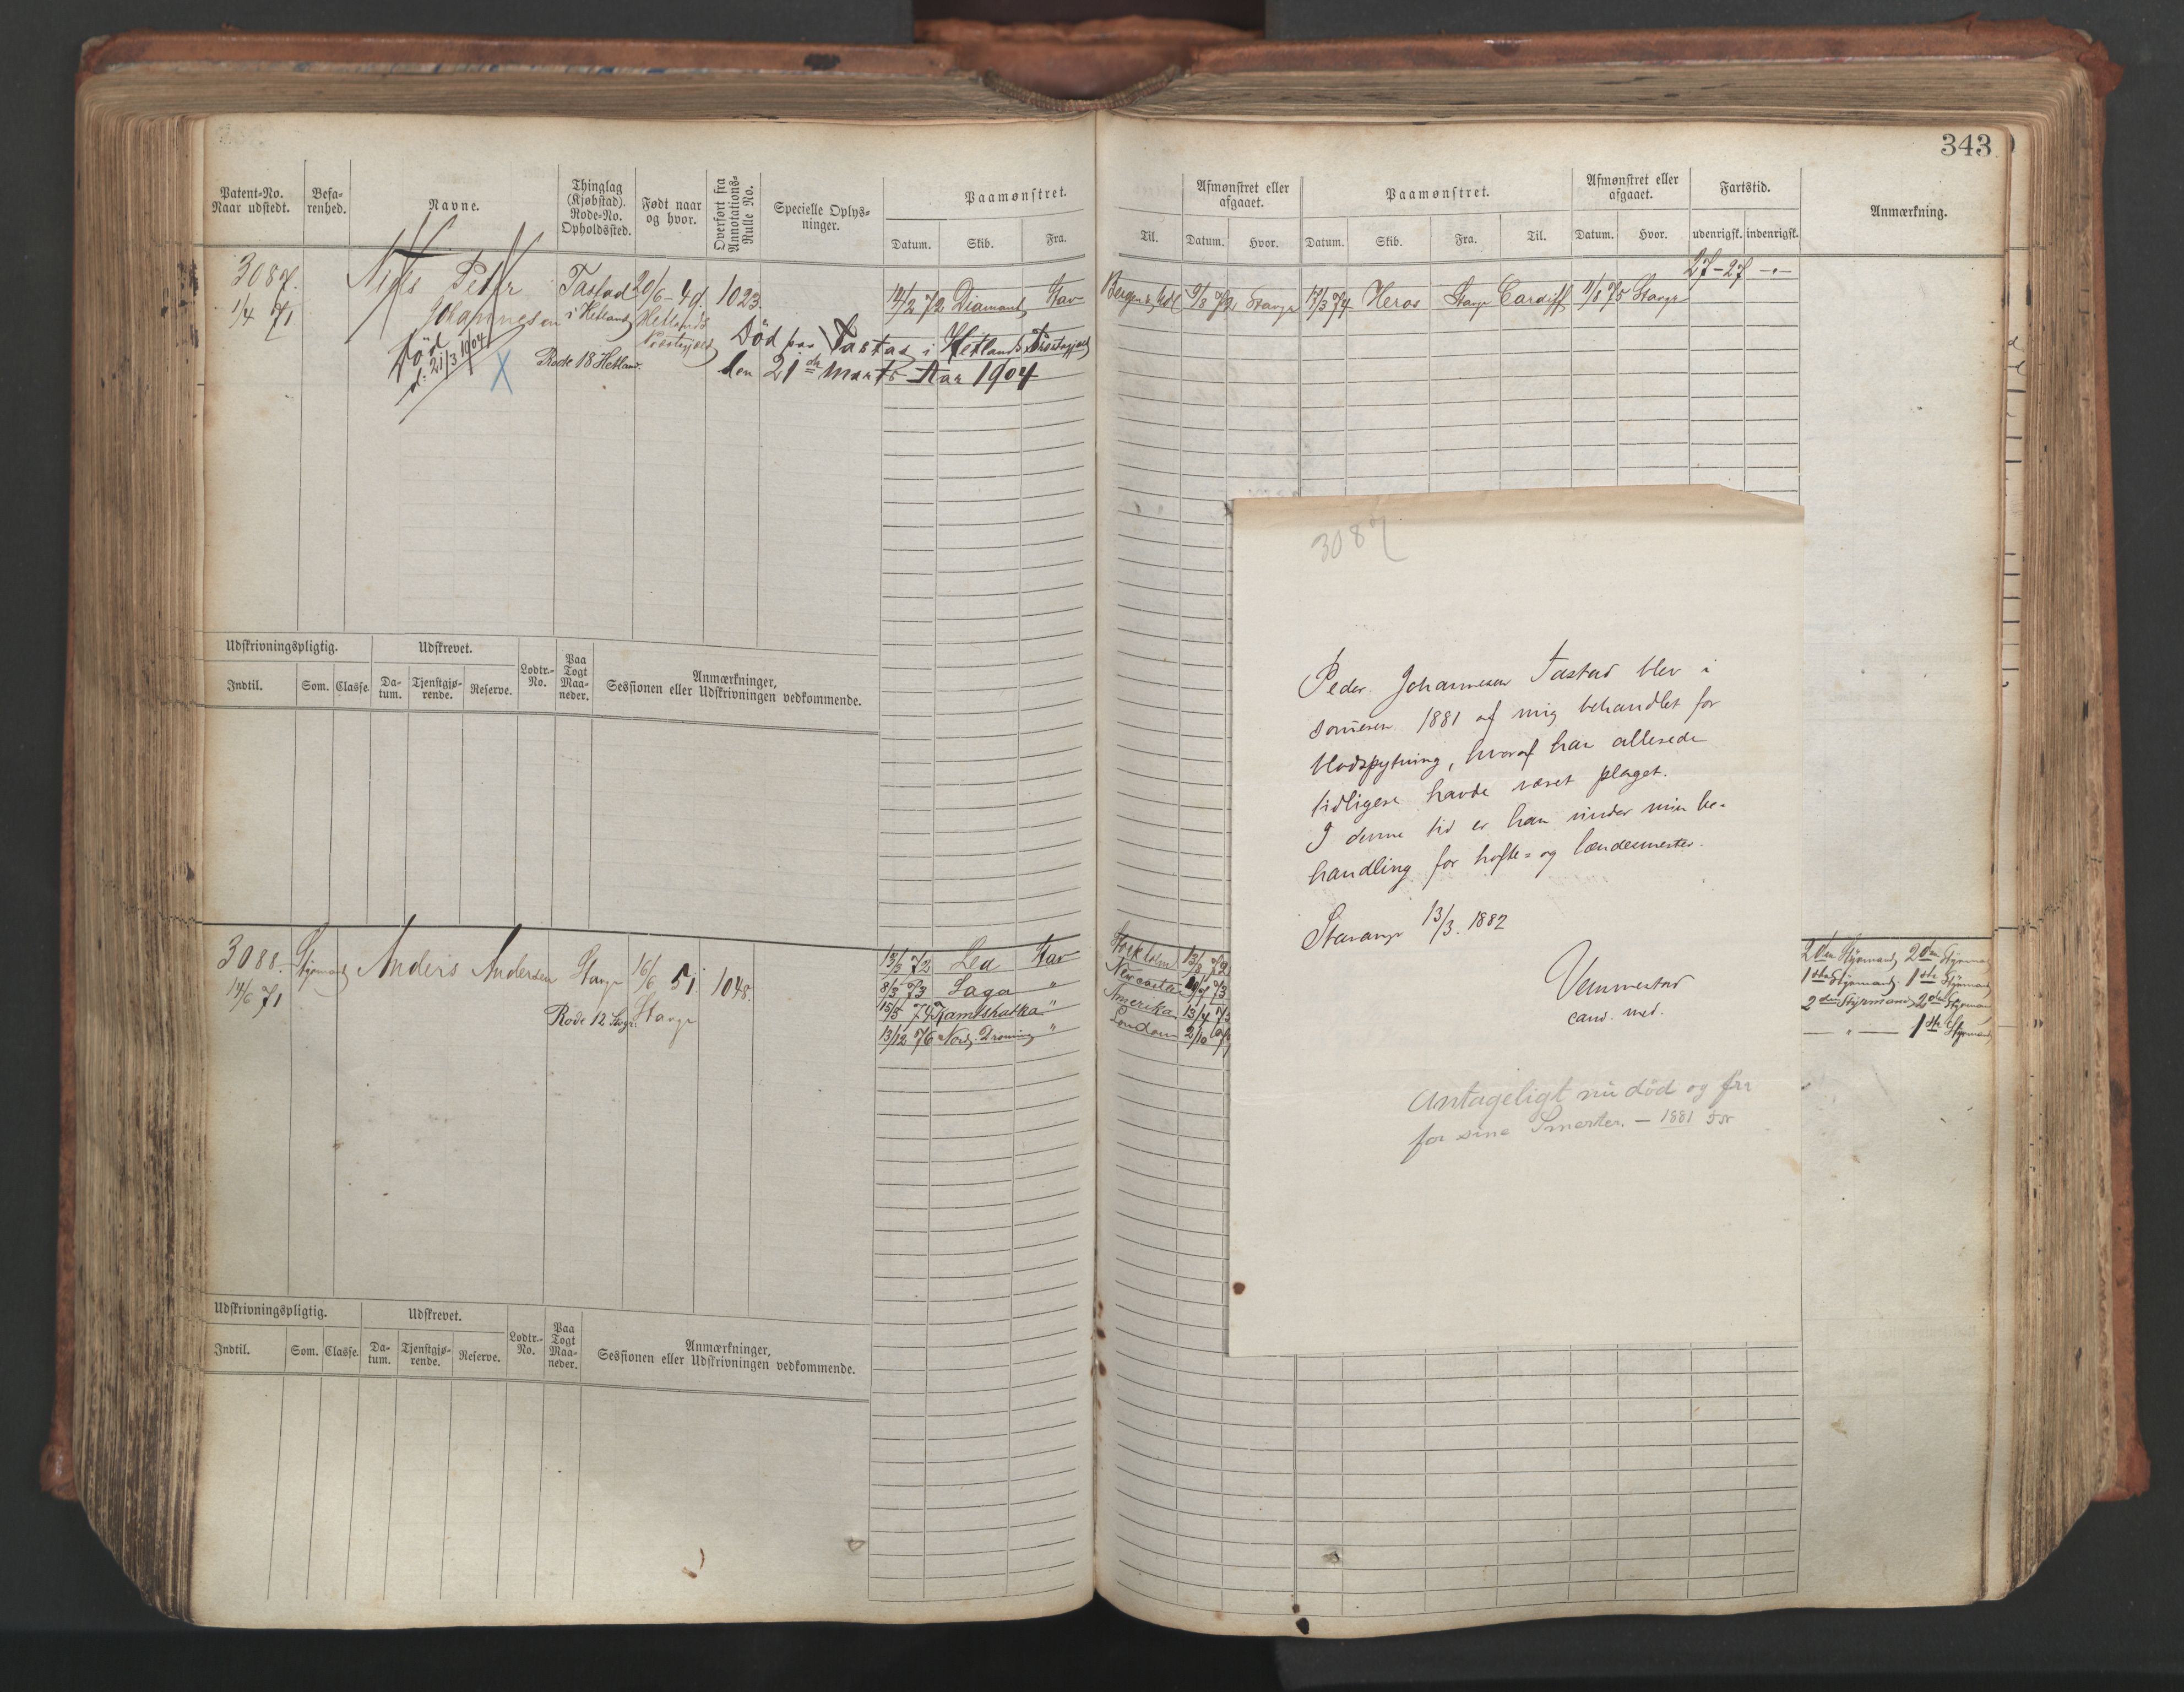 343
Patent-No. Naar udstedt.
Befarenhed.
Navne.
Thinglag (Kjøbstad). Rode-No. Opholdssted.
Født naar og hvor.
Overført fra Annotations-Rulle No.
Specielle Oplysninger.
Paamønstret.
Datum. Skib. Fra. Til.
Afmønstret eller afgaaet.
Datum. Hvor.
Paamønstret.
Datum. Skib. Fra. Til.
Afmønstret eller afgaaet.
Datum. Hvor.
Fartstid.
udenrigsk. indenrigsk.
Anmærkning.
27-27 -"-
3087. Niels Peter Tastad 20/6-49. 1023. 19/2 72 Diamant Stav Bergen 9/3 72 Stavgr 17/3 74 Heros Stavgr Cardiff 11/1 75 Stavgr
1/4 71 Johannesen i Hetland Hetlands Præstegjeld
Död d: 21/3 1904
X
Rode 18 Hetland.
Död paa Tastad i Hetlands Præstegjeld
den 21de Marts Aar 1904
Udskrivningspligtig. Udskrevet. Lodtr.-No. Paa Togt Maaneder. Anmærkninger,
Indtil. Som. Classe. Datum. Tjenstgjørende. Reserve. Sessionen eller Udskrivningen vedkommende.
3088. Styrmand Anders Andersen Stavgr 16/6 51. 1048.
14/6 71
Rode 12 Stvgr. Stavgr
13/3 72 Led Stav Stockholm
8/3 73 Saga " Newcastle
15/5 74 Kamtskatka " Amerika 13/4 75
13/12 76 Nord. Droning " London 2/10
2den Styrmand 2den Styrmand
1ste Styrmand 1ste Styrmand
2den Styrmand 2den Styrmand
— " — 1ste Styrmand
Udskrivningspligtig. Udskrevet. Lodtr.-No. Paa Togt Maaneder. Anmærkninger,
Indtil. Som. Classe. Datum. Tjenstgjørende. Reserve. Sessionen eller Udskrivningen vedkommende.
3087
Peder Johannesen Tastad blev i
som̄eren 1881 af mig behandlet for
blodspytning, hvoraf han allerede
tidligere havde været plaget.
I denne tid er han under min be-
handling for hofte- og lændesmerter.
Stavanger 13/3. 1882
Vemmestad
cand. med.
Antageligt nu död og fri
for sine Smerter. — 1881